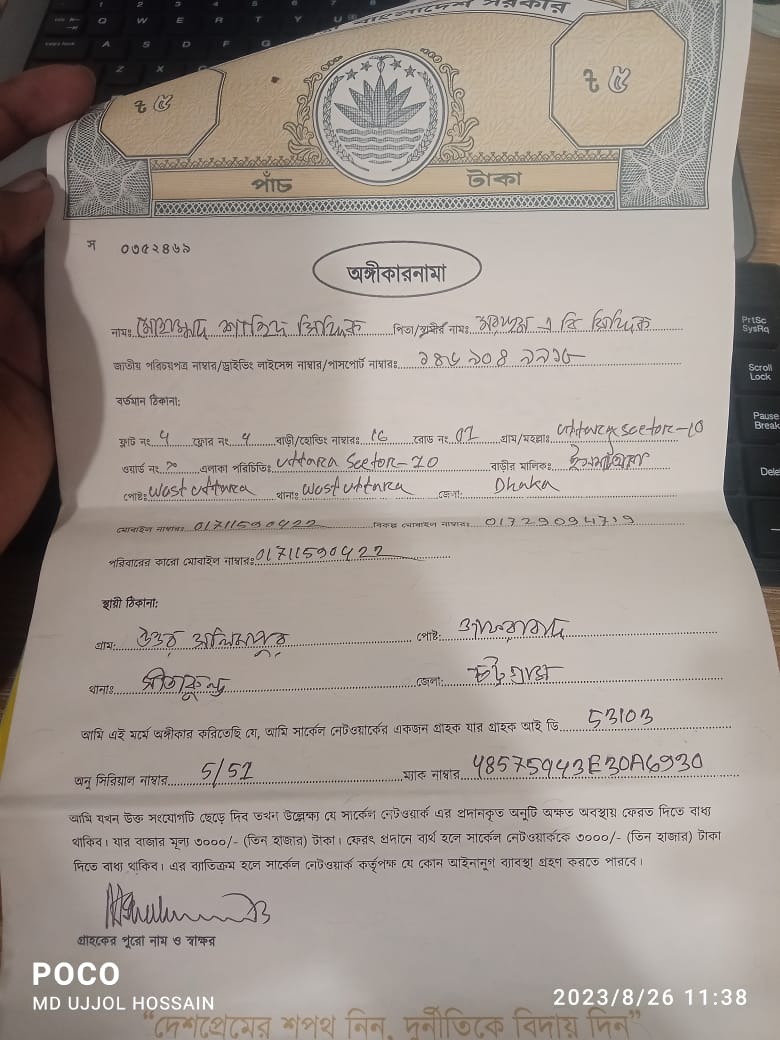 বাংলাদেশ সরকার
৳ ৫ ৳ ৫
পাঁচ টাকা
স ০৩৫২৪৬৯
অঙ্গীকারনামা
নামঃ মোহাম্মদ শাহিদ সিদ্দিক পিতা/স্বামীর নামঃ এ বি সিদ্দিক
জাতীয় পরিচয়পত্র নাম্বার/ড্রাইভিং লাইসেন্স নাম্বার/পাসপোর্ট নাম্বারঃ
বর্তমান ঠিকানা:
ফ্লাট নং 4 ফ্লোর নং 4 বাড়ী/হোল্ডিং নাম্বারঃ 16 রোড নং 07 গ্রাম/মহল্লাঃ Uttara Sector-10
ওয়ার্ড নং এলাকা পরিচিতিঃ Uttara Sector-10 বাড়ীর মালিকঃ
পোষ্টঃ West Uttara থানাঃ West Uttara জেলাঃ Dhaka
মোবাইল নাম্বারঃ 01711590422 বিকল্প মোবাইল নাম্বারঃ 01729094719
পরিবারের কারো মোবাইল নাম্বারঃ 01711590422
স্থায়ী ঠিকানা:
গ্রামঃ উত্তর সলিমপুর পোষ্টঃ জাফরাবাদ
থানাঃ সীতাকুন্ড জেলা: চট্টগ্রাম
আমি এই মর্মে অঙ্গীকার করিতেছি যে, আমি সার্কেল নেটওয়ার্কের একজন গ্রাহক যার গ্রাহক আই ডি 53103
অনু সিরিয়াল নাম্বার 5/51 ম্যাক নাম্বার 48575943E30A6930
আমি যখন উক্ত সংযোগটি ছেড়ে দিব তখন উল্লেক্ষ্য যে সার্কেল নেটওয়ার্ক এর প্রদানকৃত অনুটি অক্ষত অবস্থায় ফেরত দিতে বাধ্য
থাকিব। যার বাজার মূল্য ৩০০০/- (তিন হাজার) টাকা। ফেরৎ প্রদানে ব্যর্থ হলে সার্কেল নেটওয়ার্ককে ৩০০০/- (তিন হাজার) টাকা
দিতে বাধ্য থাকিব। এর ব্যাতিক্রম হলে সার্কেল নেটওয়ার্ক কর্তৃপক্ষ যে কোন আইনানুগ ব্যাবস্থা গ্রহণ করতে পারবে।
গ্রাহকের পুরো নাম ও স্বাক্ষর
POCO
MD UJJOL HOSSAIN
2023/8/26 11:38
“দেশপ্রেমের শপথ নিন, দুর্নীতিকে বিদায় দিন”
Q W E R T Y U
A S D F G
Z X
PrtSc
SysRq
Scroll
Lock
Pause